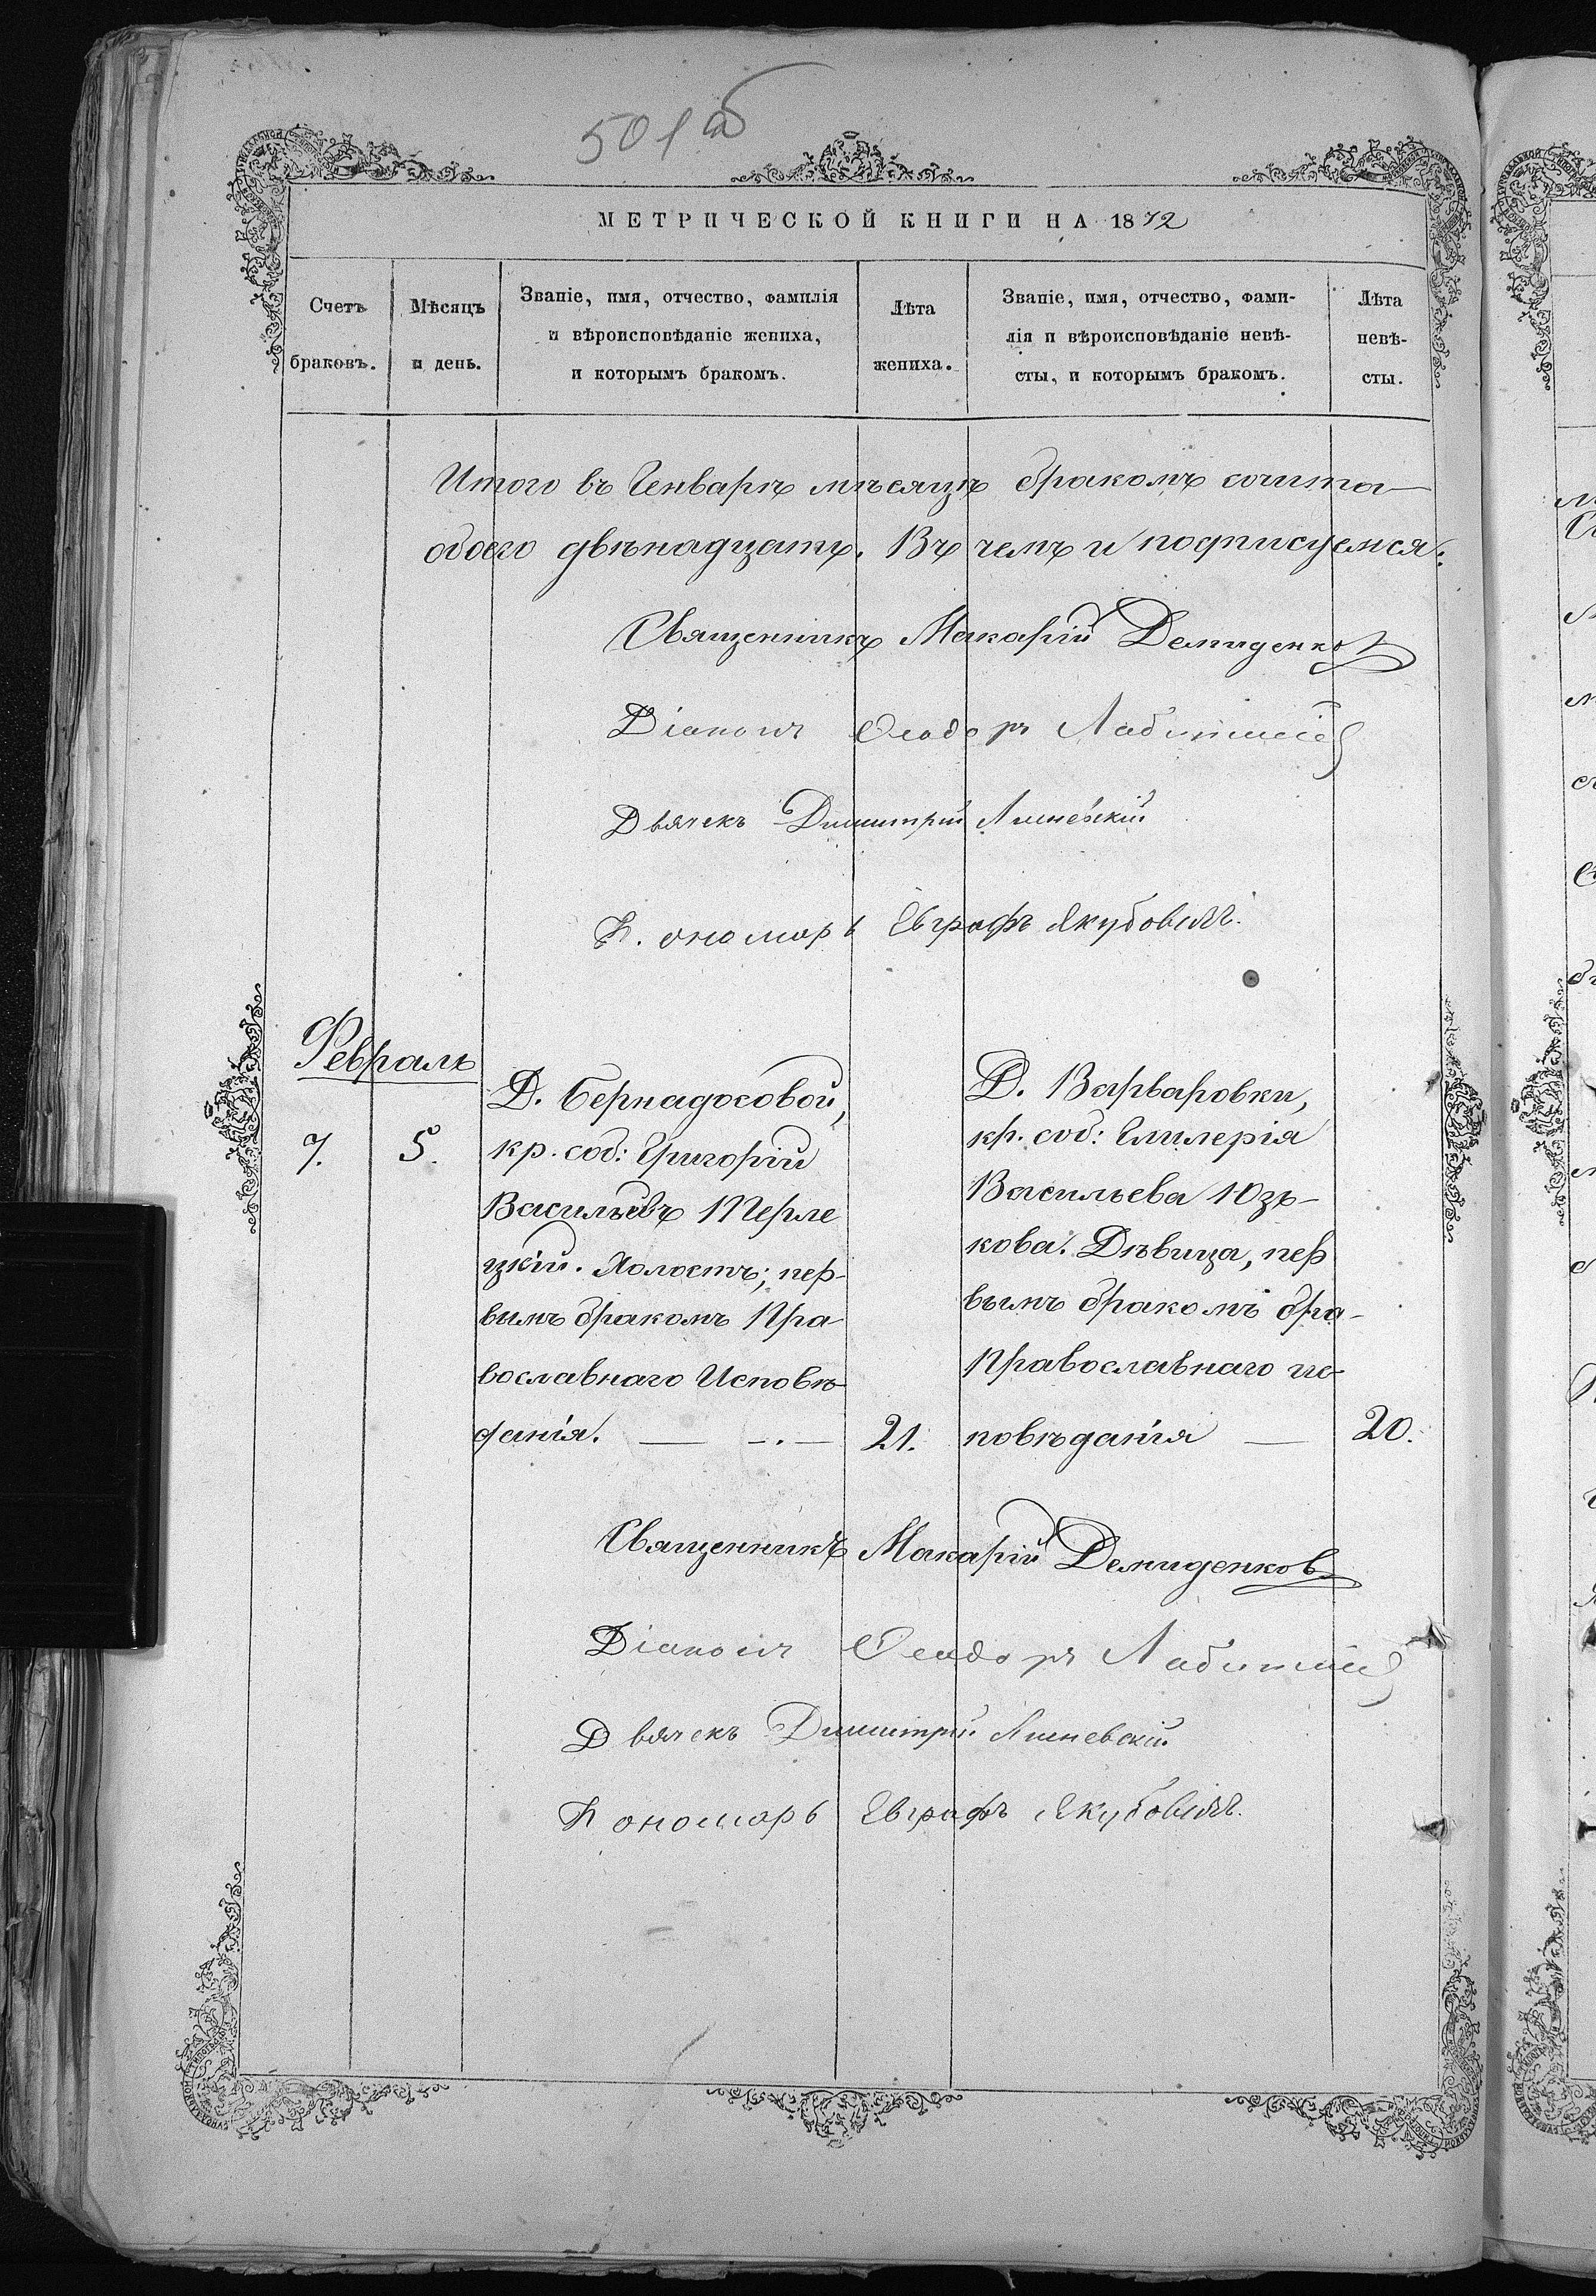 501 об
МЕТРИЧЕСКОЙ КНИГИ НА 1872
Счетъ браковъ.
Мѣсяцъ и день.
Званіе, имя, отчество, фамилія и вѣроисповѣданіе жениха, и которымъ бракомъ.
Лѣта жениха.
Званіе, имя, отчество, фамилія и вѣроисповѣданіе невѣсты, и которымъ бракомъ.
Лѣта невѣсты.
Итого въ Генварѣ мѣсяцѣ бракомъ сочита-
обоего двѣнадцать. Въ чемъ и подписуемся.
Священникъ Макарій Демиденков
Діаконъ Ѳеодоръ
Дьячекъ Димитрій
Пономарь Евграфъ Якубовичъ.
Февраль
7. 5.
Д. Бернадосовой,
кр. соб: Григорій
Васильевъ Перле
цкій. Холостъ; пер-
вымъ бракомъ Пра
вославнаго Исповѣ
данія. — -.-
21.
Д. Варваровки,
кр. соб: Глилерія
Васильева Юзь-
кова. Дѣвица, пер
вымъ бракомъ бра-
Православнаго ис
повѣданія —
20.
Священникъ Макарій Демиденков
Діаконъ Ѳеодоръ
Дьячекъ Димитрій
Пономарь Евграфъ Якубовичъ.